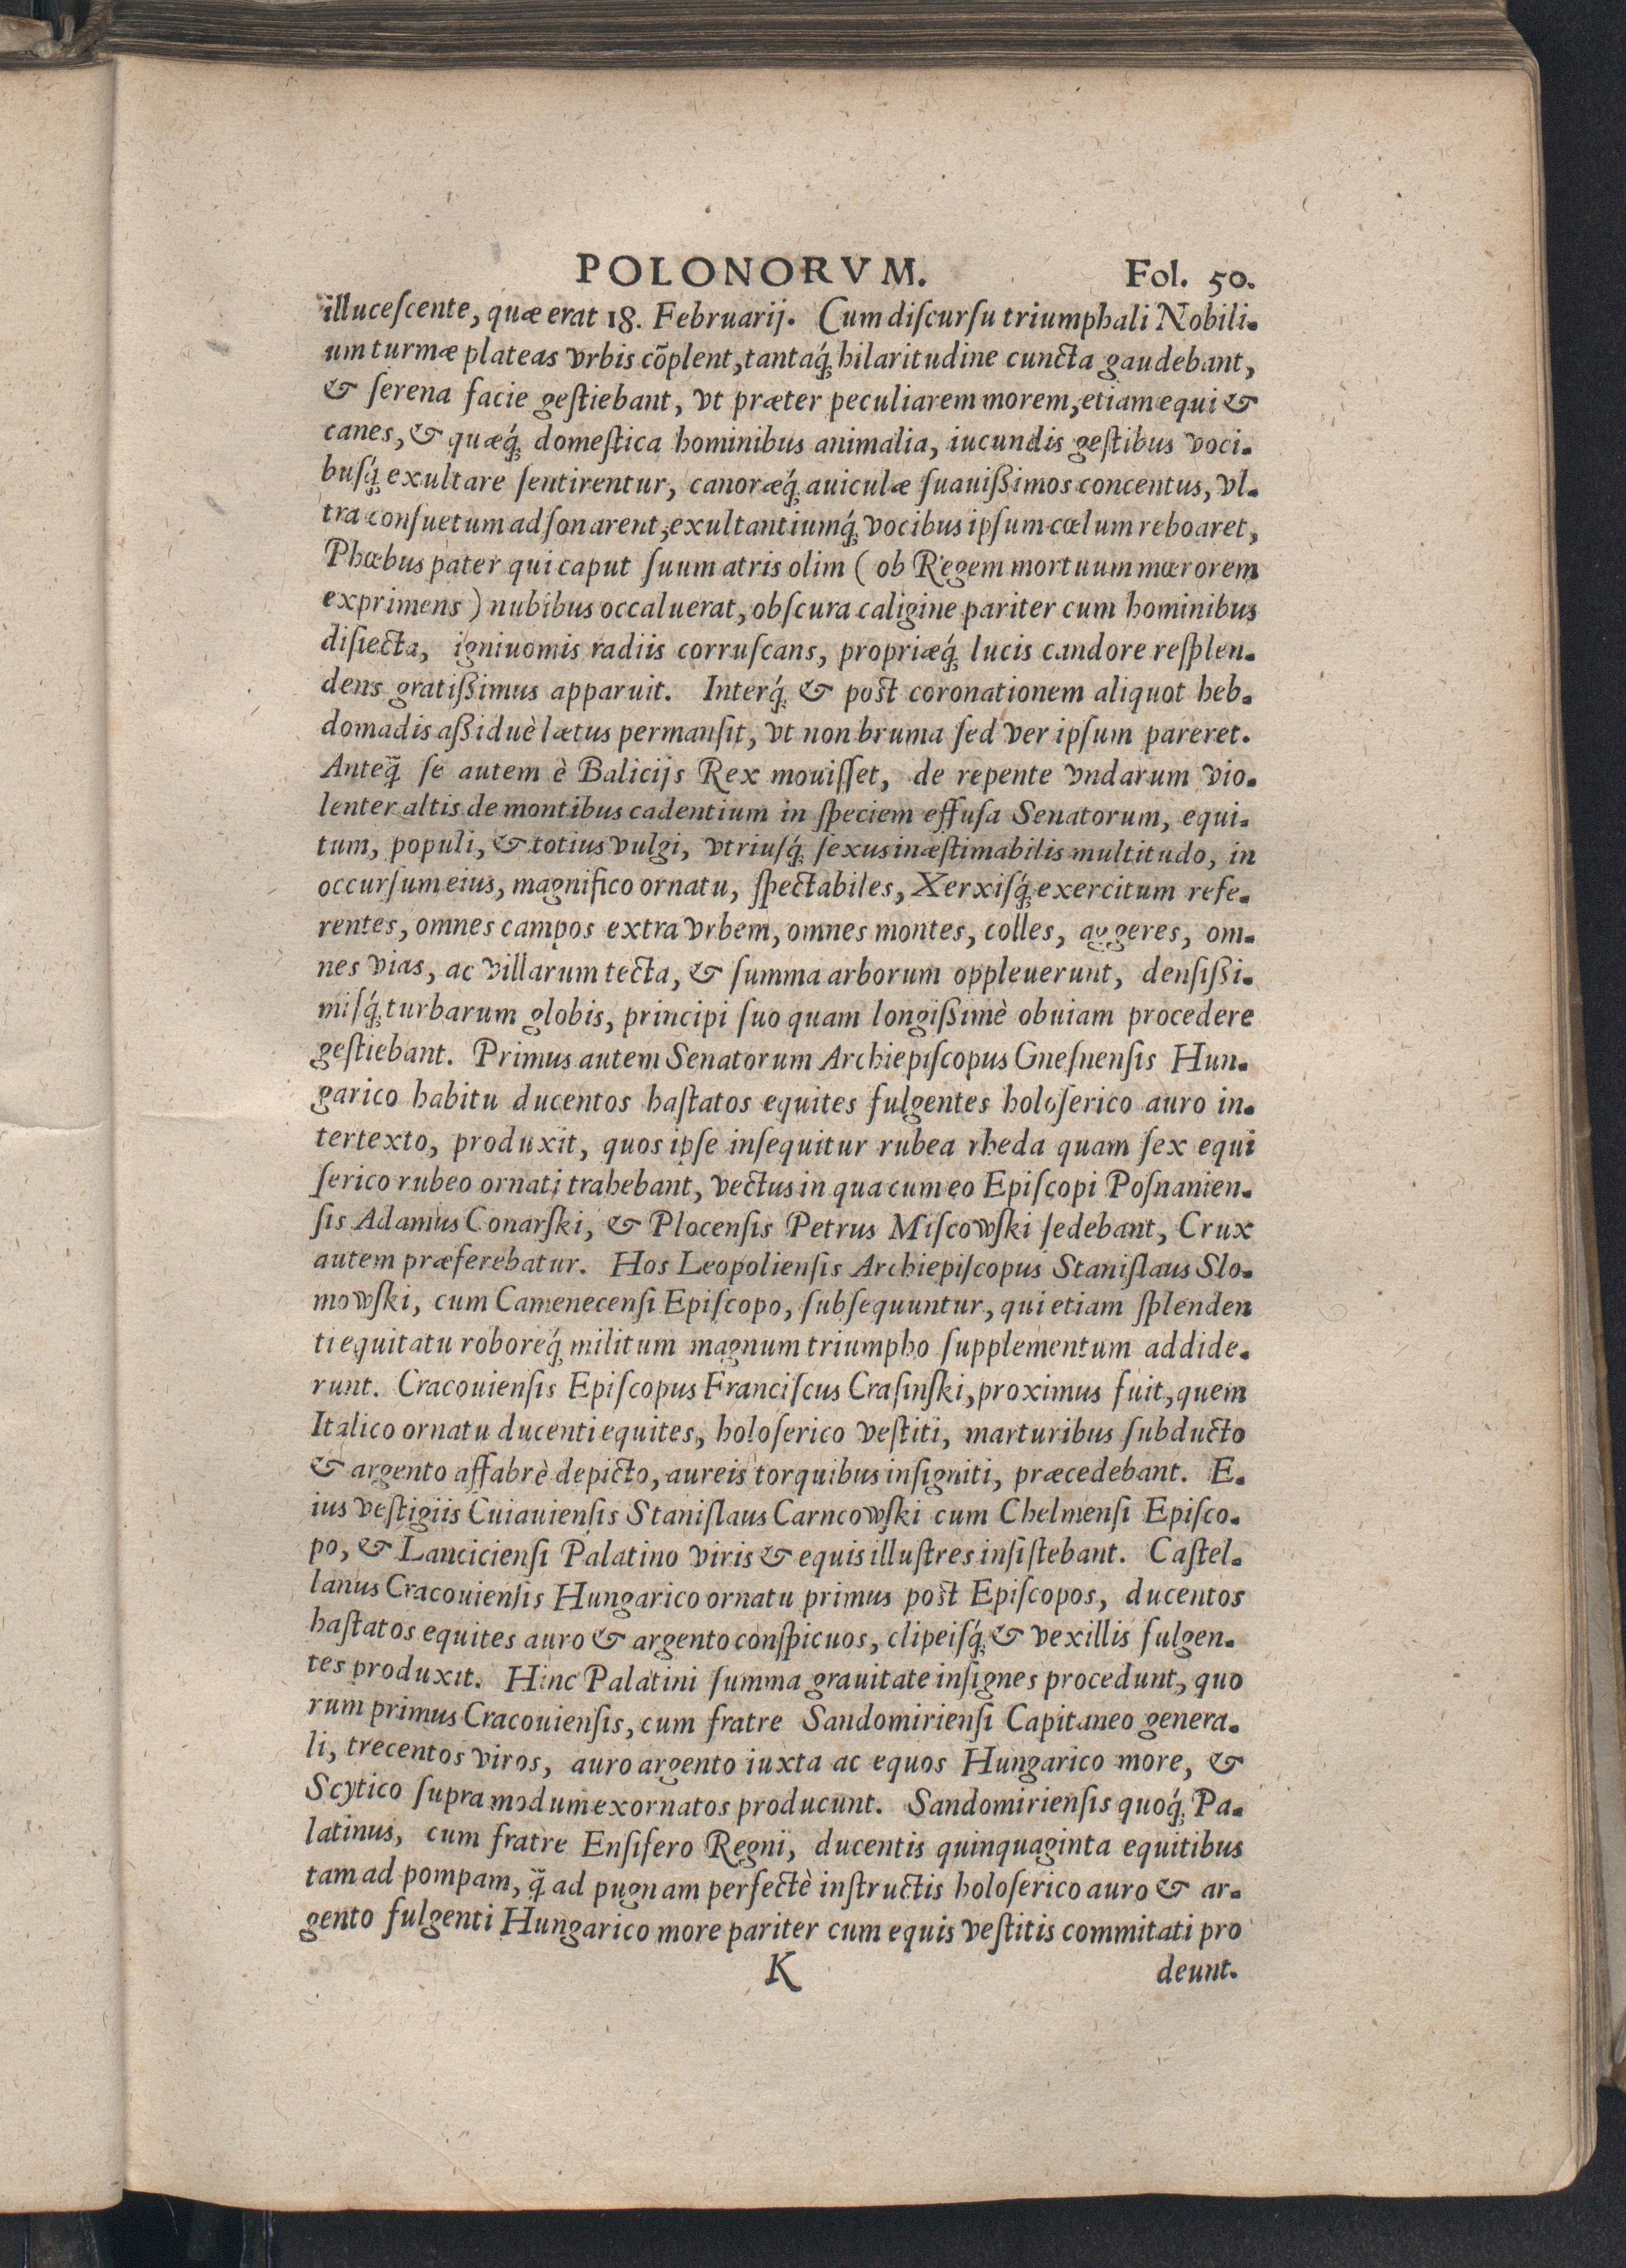 POLONORVM. Fol. 50.
illuceſcente, quæ erat 18. Februarij. Cum diſcurſu triumphali Nobili-
um turmæ plateas vrbis cõplent, tantaq́; hilaritudine cuncta gaudebant,
& ſerena facie geſtiebant, vt præter peculiarem morem, etiam equi &
canes, & quæq́; domeſtica hominibus animalia, iucundis geſtibus voci-
buſq́; exultare ſentirentur, canoræq́; auiculæ ſuauißimos concentus, vl-
tra conſuetum adſonarent, exultantiumq́; vocibus ipſum cœlum reboaret,
Phœbus pater qui caput ſuum atris olim ( ob Regem mortuum mœrorem
exprimens ) nubibus occaluerat, obſcura caligine pariter cum hominibus
diſiecta, igniuomis radiis corruſcans, propriæq́; lucis candore reſplen-
dens gratißimus apparuit. Interq́; & poſt coronationem aliquot heb-
domadis aßiduè lætus permanſit, vt non bruma ſed ver ipſum pareret.
Anteq̃ ſe autem è Balicijs Rex mouiſſet, de repente vndarum vio-
lenter altis de montibus cadentium in ſpeciem effuſa Senatorum, equi-
tum, populi, & totius vulgi, vtriuſq́; ſexus inæſtimabilis multitudo, in
occurſum eius, magnifico ornatu, ſpectabiles, Xerxiſq́; exercitum refe-
rentes, omnes campos extra vrbem, omnes montes, colles, aggeres, om-
nes vias, ac villarum tecta, & ſumma arborum oppleuerunt, denſißi-
miſq́; turbarum globis, principi ſuo quam longißimè obuiam procedere
geſtiebant. Primus autem Senatorum Archiepiſcopus Gneſnenſis Hun-
garico habitu ducentos haſtatos equites fulgentes holoſerico auro in-
tertexto, produxit, quos ipſe inſequitur rubea rheda quam ſex equi
ſerico rubeo ornati trahebant, vectus in qua cum eo Epiſcopi Poſnanien-
ſis Adamus Conarſki, & Plocenſis Petrus Miſcowſki ſedebant, Crux
autem præferebatur. Hos Leopolienſis Archiepiſcopus Staniſlaus Slo-
mowſki, cum Camenecenſi Epiſcopo, ſubſequuntur, qui etiam ſplenden
ti equitatu roboreq́; militum magnum triumpho ſupplementum addide-
runt. Cracouienſis Epiſcopus Franciſcus Craſinſki, proximus fuit, quem
Italico ornatu ducenti equites, holoſerico veſtiti, marturibus ſubducto
& argento affabrè depicto, aureis torquibus inſigniti, præcedebant. E-
ius veſtigiis Cuiauienſis Staniſlaus Carncowſki cum Chelmenſi Epiſco-
po, & Lancicienſi Palatino viris & equis illuſtres inſiſtebant. Caſtel-
lanus Cracouienſis Hungarico ornatu primus poſt Epiſcopos, ducentos
haſtatos equites auro & argento conſpicuos, clipeiſq́; & vexillis fulgen-
tes produxit. Hinc Palatini ſumma grauitate inſignes procedunt, quo
rum primus Cracouienſis, cum fratre Sandomirienſi Capitaneo genera-
li, trecentos viros, auro argento iuxta ac equos Hungarico more, &
Scytico ſupra modum exornatos producunt. Sandomirienſis quoq́; Pa-
latinus, cum fratre Enſifero Regni, ducentis quinquaginta equitibus
tam ad pompam, q̃ ad pugnam perfectè inſtructis holoſerico auro & ar-
gento fulgenti Hungarico more pariter cum equis veſtitis commitati pro
K deunt.